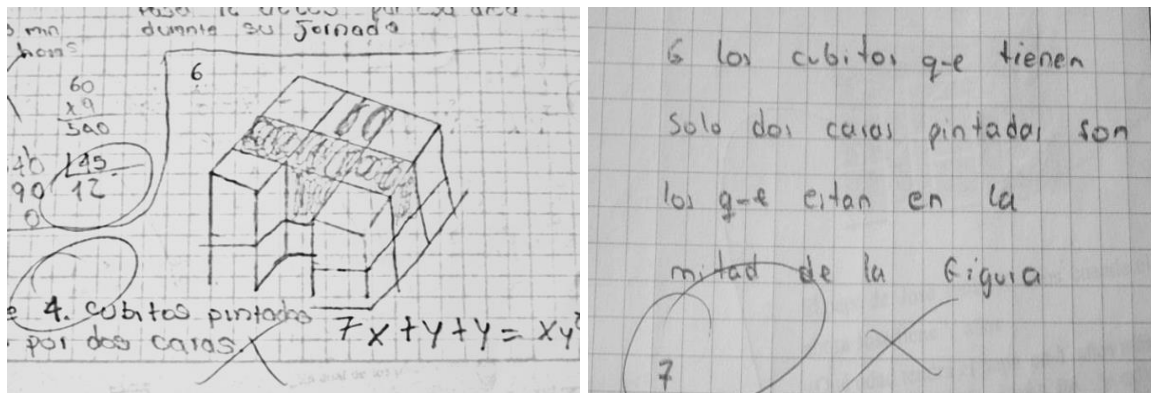 min
horas
durante su jornada
60
x9
540
45
90 12
0
6
4. cubitos pintados
por dos caras.
7x + y + y = xy
6 los cubitos que tienen
solo dos caras pintadas son
los que estan en la
mitad de la figura
7